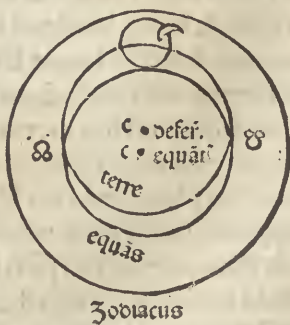 c • defer.
c • equãt
☊ ☋
terre
equãs
Zodiacus